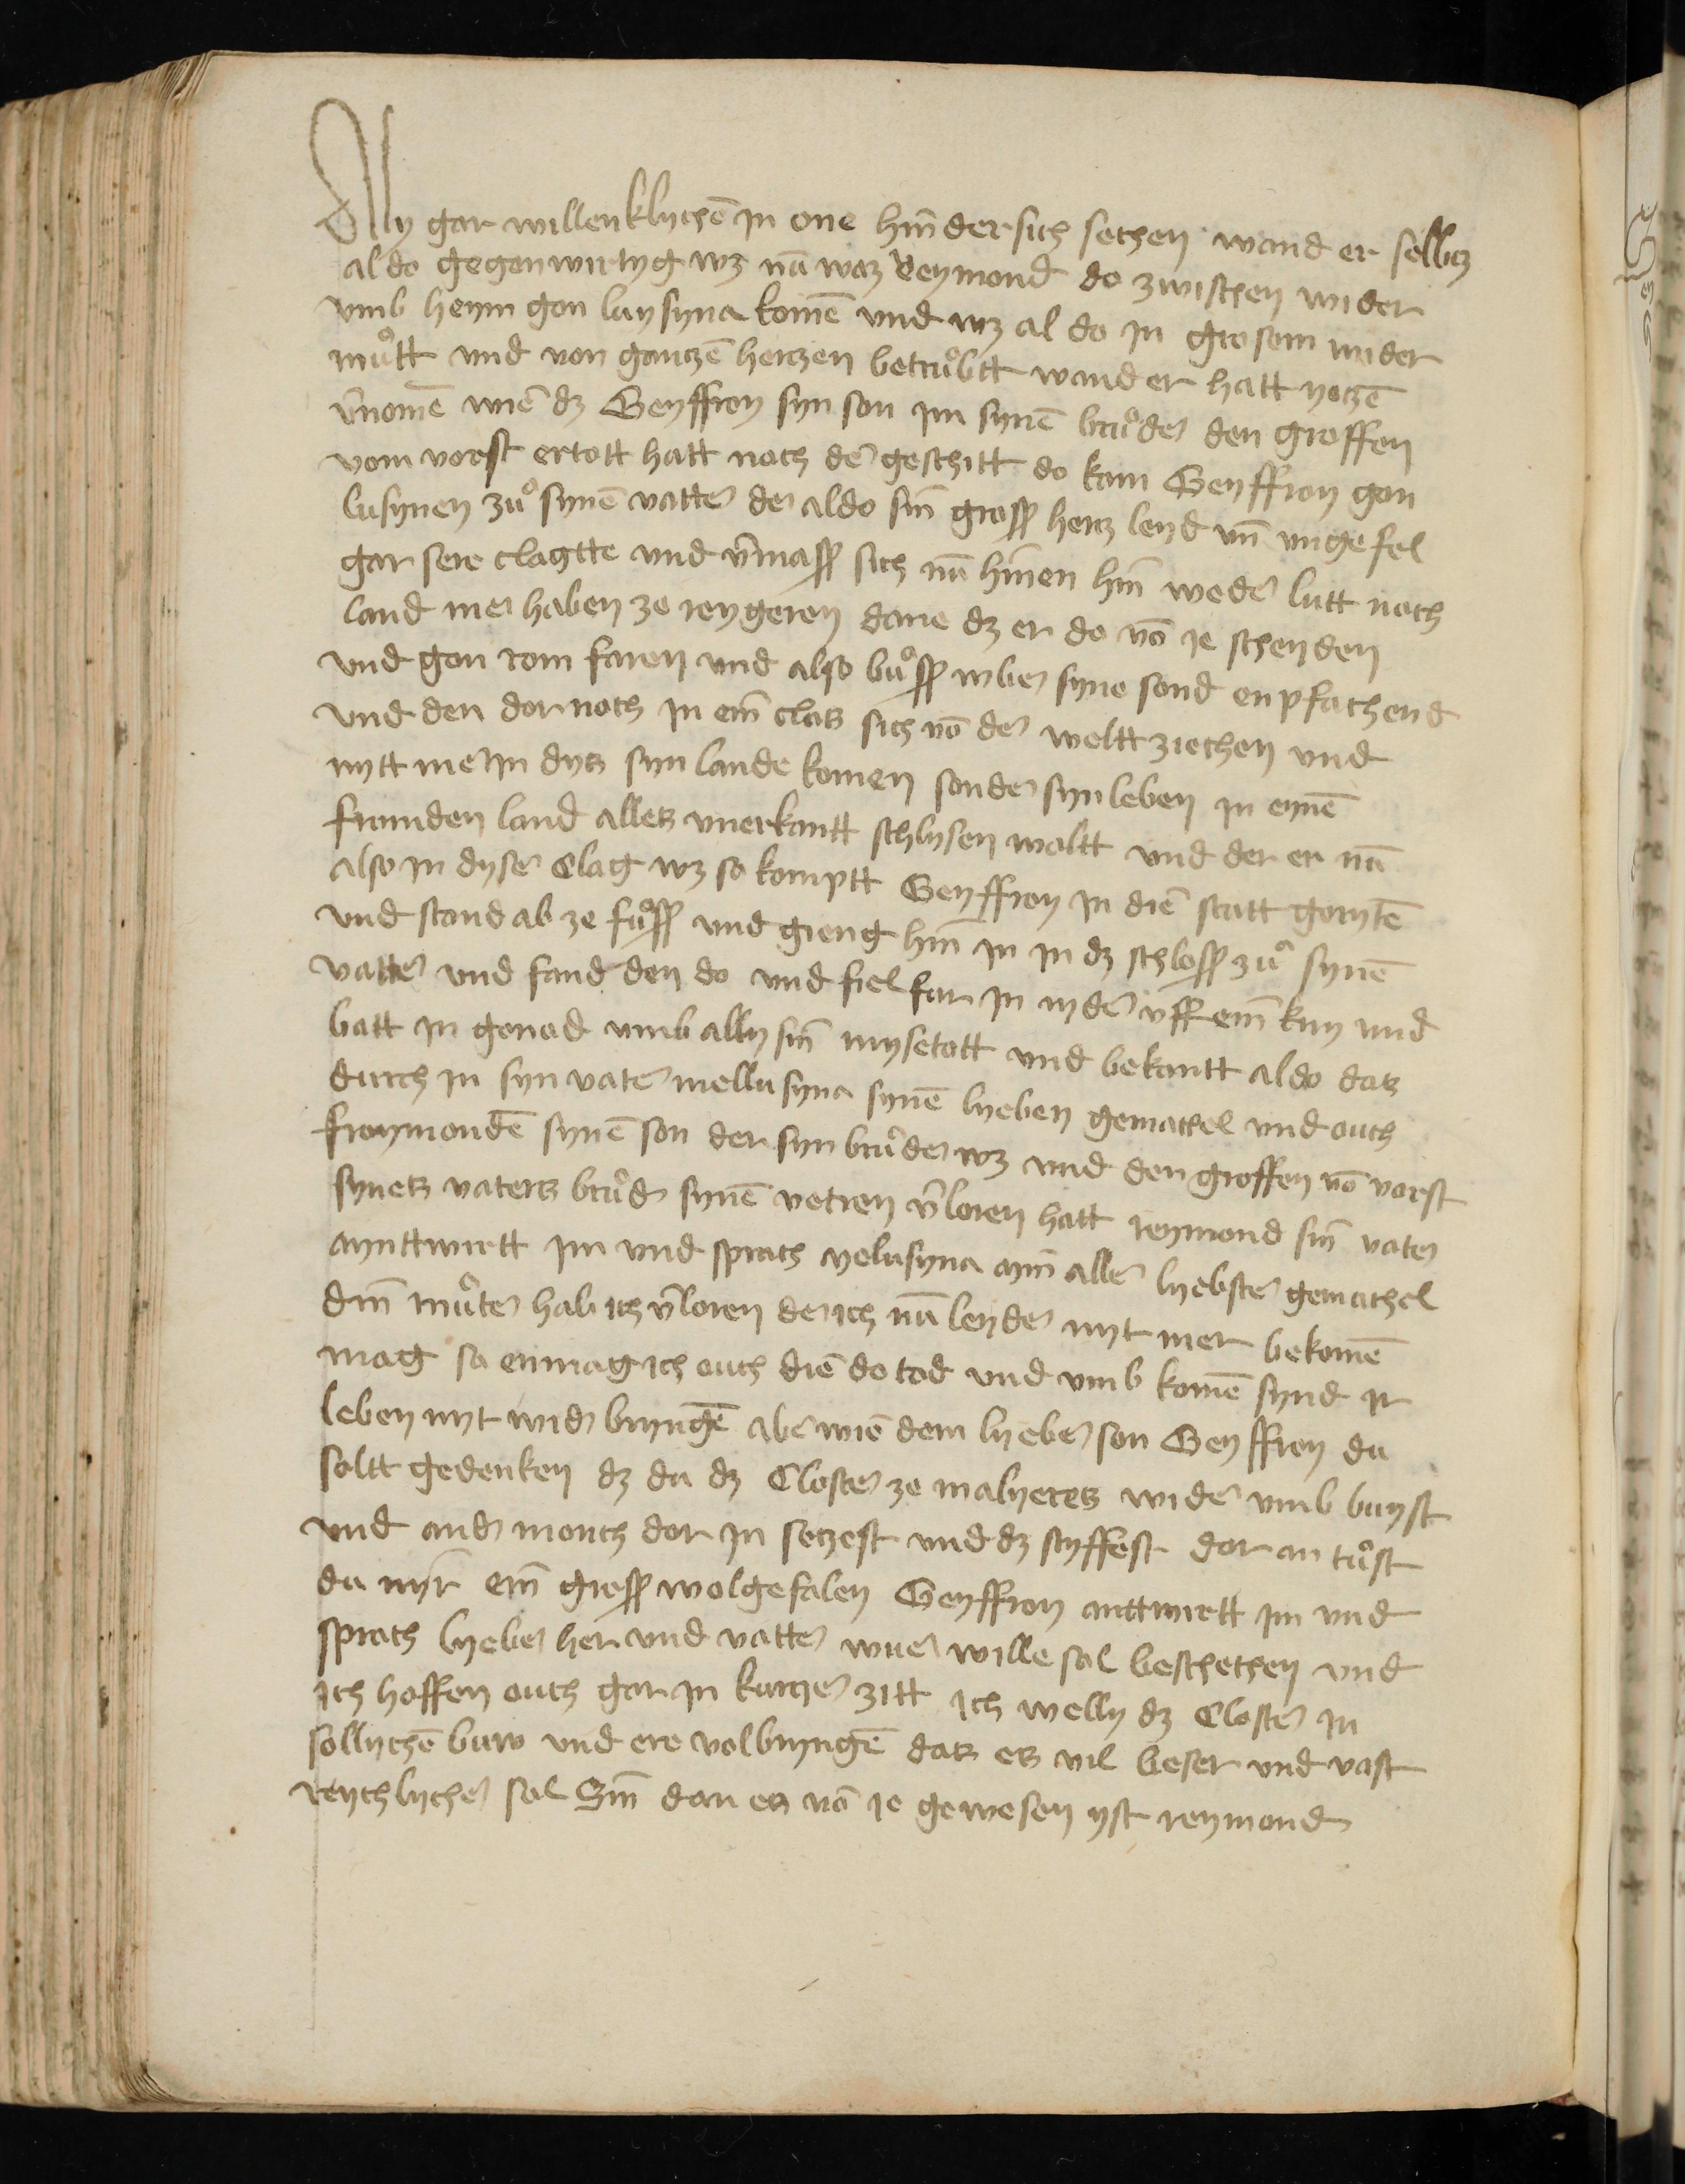 Ally gar willenklychē in one hin̄dersich sechen wand er selbtz
al do gegenwirtyg wz nū waz Reymond do zwischen wider
vmb heym gon lusyna komē vnd wz al do in grosem wider
mu̓tt vnd von gantzē hertzen betru̓btt wand er hatt yetzē
v̄nomē wiē dz Geyffroy syn son im synē bru̓der den groffen
vom vorst ertott hatt noch der geschitt do kam Geyffroy gon
lusynen zu̓ synē vatter der aldo sin̄ gross hertz leyd vn̄ vngefel
gar sere clagtte vnd v̄mass sich nū hinen hin̄ weder lutt noch
land mer haben ze reygeren dane dz er do vō ie scheyden
vnd gon rom faren vnd also bu̓ss vber syne sond enpfachend
vnd den dornoch in ein̄ clos sich vō der weltt ziechen vnd
nytt mer in dys syn lande komen sonder syn leben in eynē
fromden land alles vnerkantt schlysen woltt vnd der er nū
also in dyser Clag wz so komptt Geyffroy in diē statt gerytē
vnd stond ab ze fu̓ss vnd gieng hin̄ in in dz schloss zu̓ synē
vatter vnd fand den do vnd fiel far in nyder vff ein̄ kny vnd
batt in genod vmb ally sin̄ mysetott vnd bekantt aldo das
durch in syn vater mellusyna synē lyeben gemachel vnd ouch
froymondē synē son der syn bru̓der wz vnd den groffen vō vorst
synes vaters bru̓d synē vetren v̄loren hatt reymond sin̄ vater
aynttwirtt im vnd sprach melusyna myn̄ aller lyebster gemachel
din̄ mu̓ter hab ich v̄loren der ich nū leyder nyt mer bekomē
mag so enmag ich ouch diē do tod vnd vmb komē synd ir
leben nyt wid bryngē aber wiē dem lyeber son Geyffroy du
soltt gedenken dz du dz Closter ze malyeres wider vmb buyst
vnd and monch dor in setzest vnd dz styffest dor an tu̓st
du myr ein̄ gross wolgefalen Geyffroy anttwirtt im vnd
sprach lyeber her vnd vatter wuer wille sol beschechen vnd
ich hoffen ouch gar in kurtzer zitt ich welly dz Closter in
sollychē buw vnd ere volbryngē das es vil beser vnd vast
reychlycher sol Sin̄ dan es vō ie gewesen yst reymond